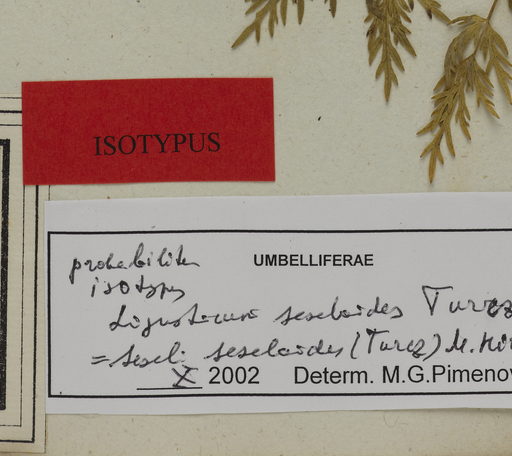 ISOTYPUS
probabiliter UMBELLIFERAE
isotypus
Ligusticum seseloides Turcz
= Seseli seseloides (Turcz) M.
X 2002 Determ. M.G.Pimenov